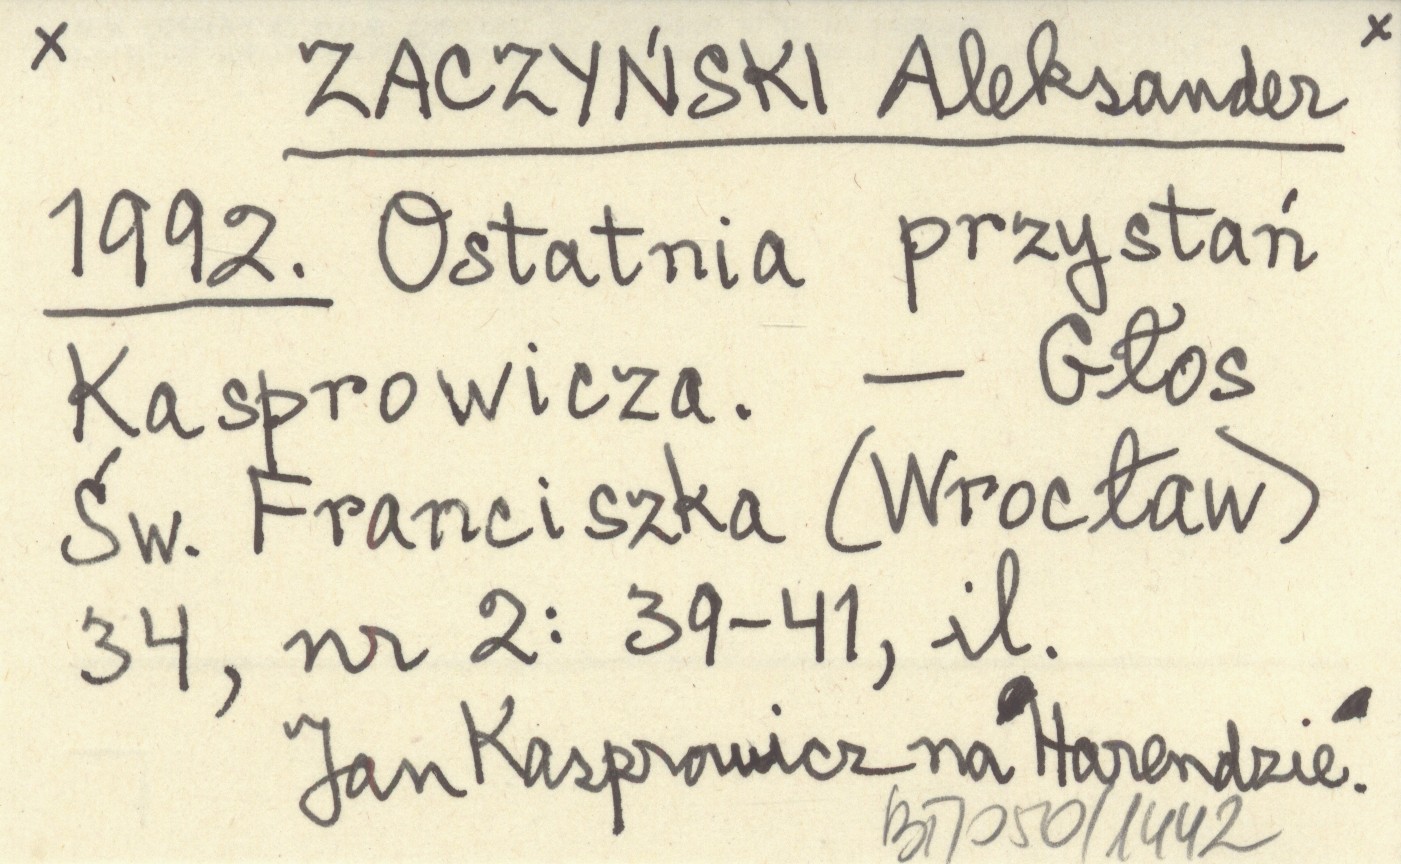 x ZACZYŃSKI Aleksander x
1992. Ostatnia przystań
Kasprowicza. — Głos
Św. Franciszka (Wrocław)
34, nr 2: 39-41, il.
Jan Kasprowicz na "Harendzie".
/1442